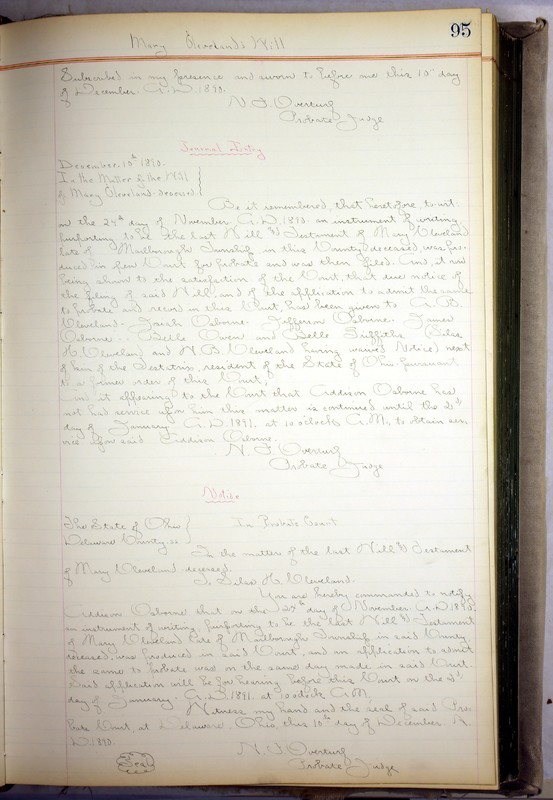 95
Mary Cleveland's Will
Subscribed in my presence and sworn to before me this 10" day
of December. A.D. 1890.
N. F. Overturf
Probate Judge
Journal Entry
December. 10th 1890.
In the Matter of the Will
of Mary Cleveland deceased
Be it remembered, that heretofore to wit:
on the 24th day of November. A.D. 1890. an instrument of writing
purporting to be the last Will & Testament of Mary Cleveland
late of Marlborough Township in this County, deceased, was pro-
duced in open Court for probate and was then filed. And, it now
being shown to the satisfaction of the Court, that due notice of
the filing of said Will, and of the application to admit the same
to probate and record in this Court, has been given to A.B.
Cleveland. Josiah Osborne. Jefferson Osborne. James
Osborne. Belle Owen and Belle Griffiths (Silas
H. Cleveland and N.B. Cleveland having waived Notice) next
of kin of the Testatrix, resident of the State of Ohio pursuant
to a former order of this Court,
And it appearing to the Court that Addison Osborne has
not had service upon him this matter is continued until the 2nd
day of January A.D. 1891. at 10 o'clock A.M., to obtain ser-
vice upon said Addison Osborne.
N. F. Overturf
Probate Judge
Notice
The State of Ohio
Delaware County. ss.
In Probate Court
In the matter of the last Will & Testament
of Mary Cleveland deceased.
To Silas H. Cleveland.
You are hereby commanded to notify
Addison Osborne that on the 24th day of November. A.D. 1890.
an instrument of writing, purporting to be the last Will & Testament
of Mary Cleveland late of Marlborough Township in said County,
deceased, was produced in said Court, and an application to admit
the same to probate was on the same day made in said Court.
Said application will be for hearing before this Court on the 2nd
day of January. A.D. 1891. at 10 o'clock A.M.
Witness my hand and the seal of said Pro-
bate Court, at Delaware. Ohio, this 10th day of December. A.
D. 1890.
N. F. Overturf
Probate Judge
Seal